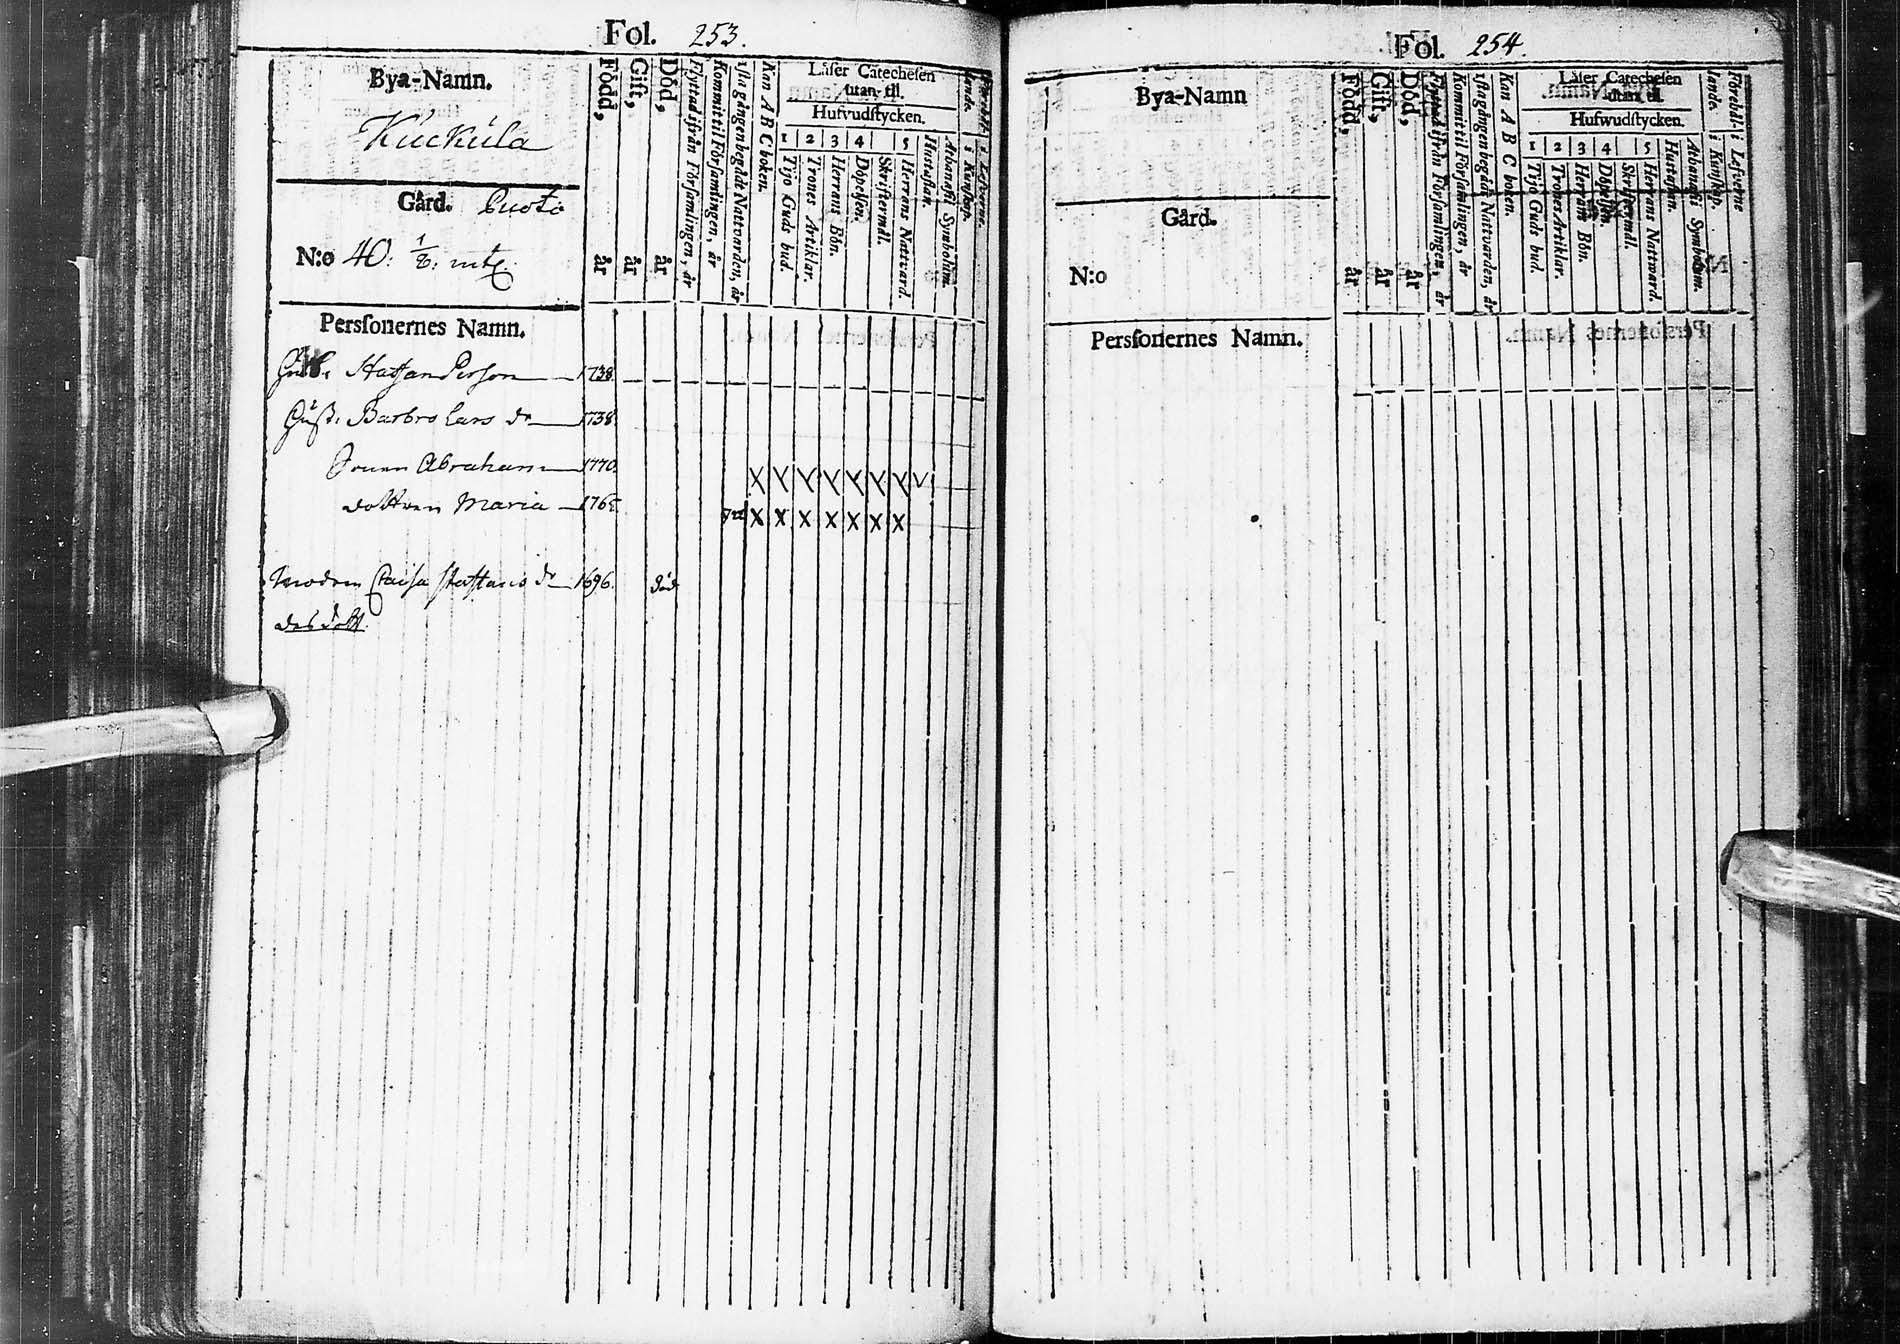 Fol. 253.
Bya-Namn.
Kúckúla
Gård.
N:o 40.
Född, år
Gift, år
Död, år
Flyttad ifrån Församlingen, år
Kommit til Församlingen, år
1sta gången begådt Nattvarden, år
Kan A B C boken.
Läser Catechesen
utan til.
Hufvudstycken.
1 2 3 4 5
Tijo Guds bud.
Trones Artiklar.
Herrans Bön.
Döpelsen.
Skriftermål.
Herrans Nattvard.
Hustaflan.
Athanasii Symbolum.
Personernes Namn.
Person 1738.
Barbro Lars dr 1738.
Sonen Abraham 1770.
dottren Maria
Modren dr 1696. död
des dott.
Fol. 254.
Bya-Namn
Gård.
N:o
Född, år
Gift, år
Död, år
Flyttad ifrån Församlingen, år
Kommit til Församlingen, år
1sta gången begådt Nattvarden, år
Kan A B C boken.
Läser Catechesen
utan til.
Hufwudstycken.
1 2 3 4 5
Tijo Guds bud.
Trones Artiklar.
Herrans Bön.
Döpelsen.
Skriftermål.
Herrans Nattward.
Hustaflan.
Athanasii Symbolum.
i Kunskap.
i Lefverne
Personernes Namn.